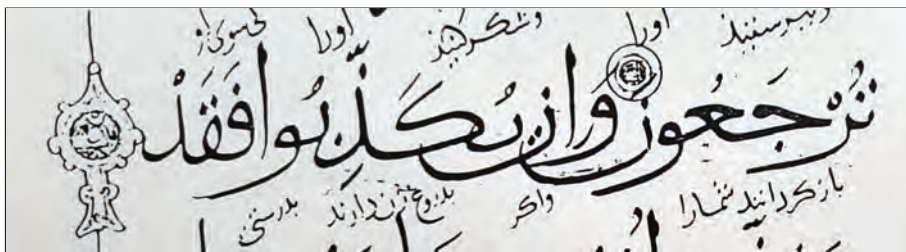 وبپرستید اورا وشکر کنید اورا کی سوی او
تُرْجَعُونَ وَاِن تُكَذِّبُوا فَقَدْ
باز کردانند شمارا واکر بدروغ زن دارند بدرستی